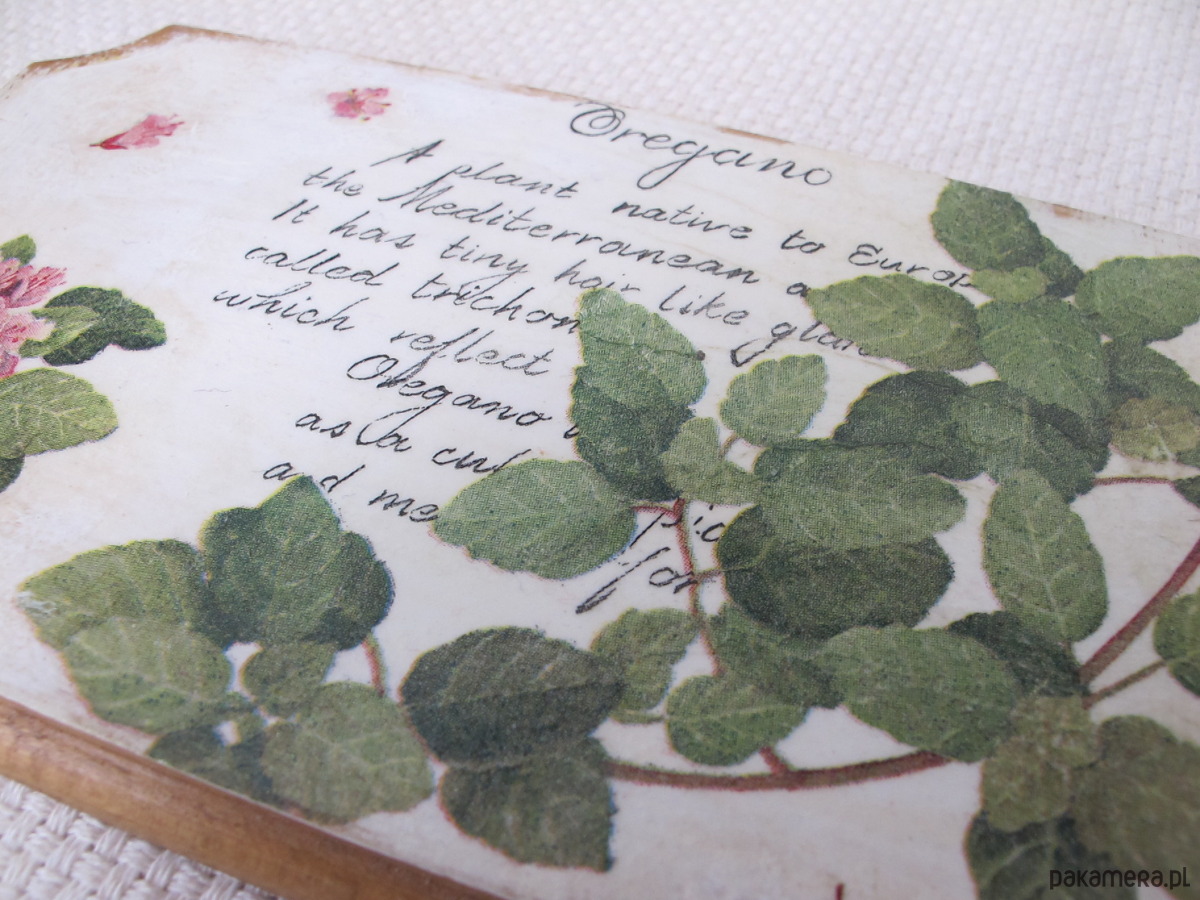 Oregano
A plant native to Europ
the Mediterranean a
It has tiny hair like glan
called trichom
which reflect
Oregano
as a cul
and me
pic
for
pakamera.pl